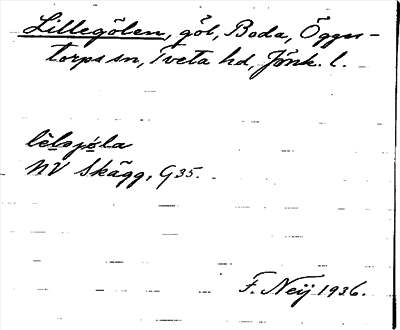 Lillegölen, göl, Boda, Öggestorps sn, Tveta hd, Jönk. l.
lèlagjø̀la
NV Skägg, G35.
F. Neij 1936.